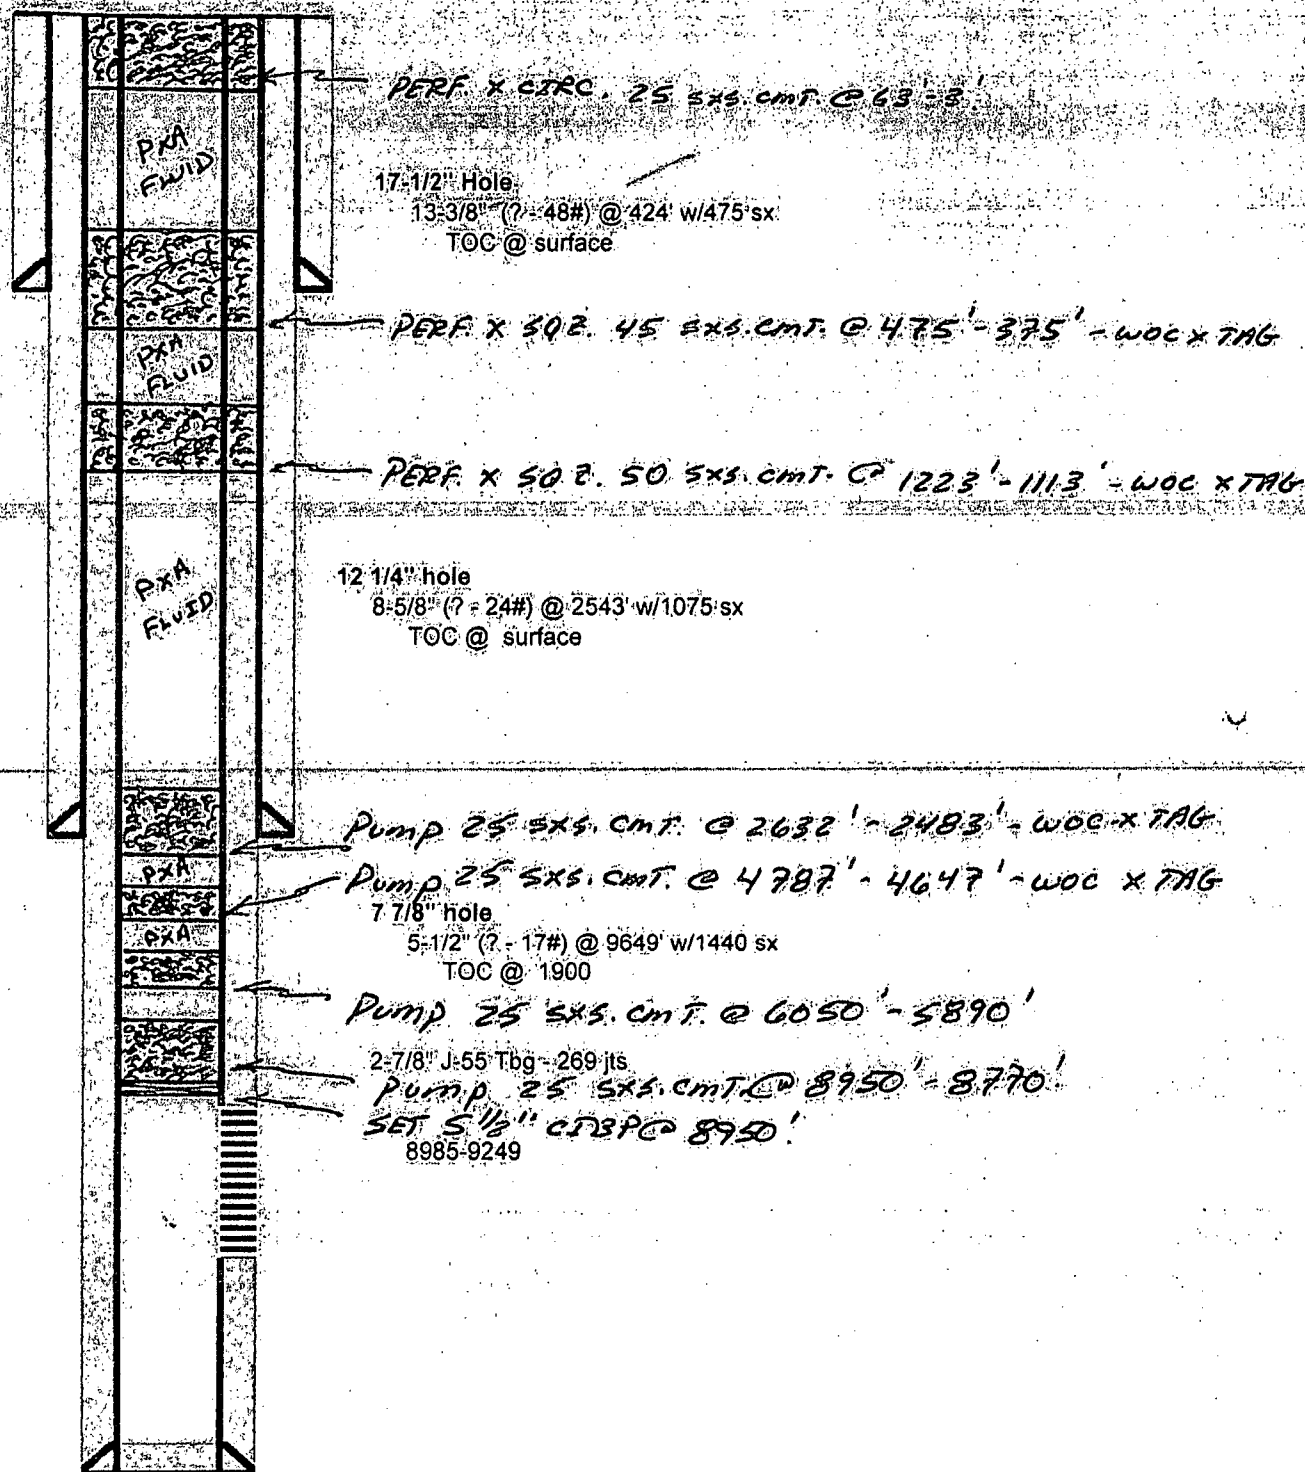 PERF. X CIRC. 25 SXS. CMT. @ 63'-3'
PXA
FLUID
17-1/2" Hole
13-3/8" (? - 48#) @ 424' w/475 sx
TOC @ surface
PERF. X SQZ. 45 SXS. CMT. @ 475'-375' - WOC X TAG
PXA
FLUID
PERF. X SQZ. 50 SXS. CMT. @ 1223'-1113' - WOC X TAG
PXA
FLUID
12 1/4" hole
8-5/8" (? - 24#) @ 2543' w/1075 sx
TOC @ surface
Pump 25 SXS. CMT. @ 2632'-2483' - WOC X TAG
PXA
Pump 25 SXS. CMT. @ 4787'-4647' - WOC X TAG
7 7/8" hole
PXA
5-1/2" (? - 17#) @ 9649' w/1440 sx
TOC @ 1900
Pump 25 SXS. CMT. @ 6050'-5890'
2-7/8" J-55 Tbg - 269 jts
Pump 25 SXS. CMT. @ 8950'-8770'
SET 5 1/2" CIBP @ 8950'
8985-9249